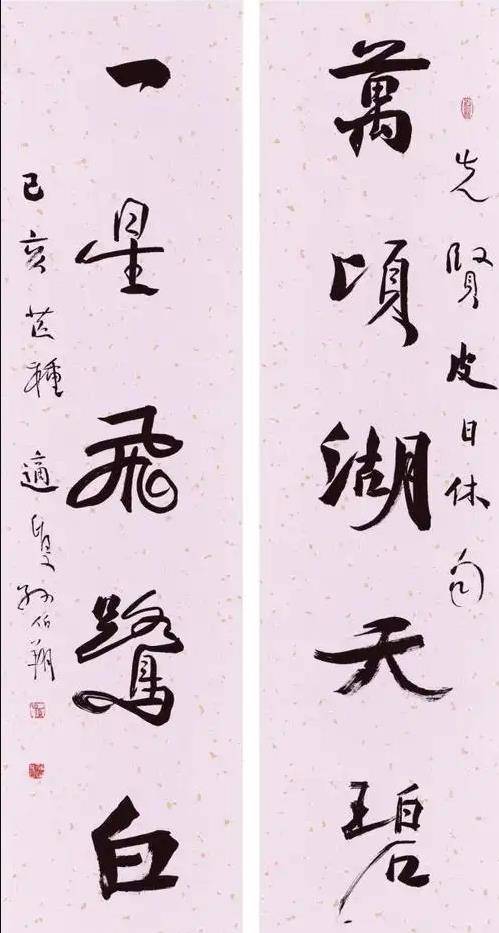 先賢皮日休句
萬頃湖天碧
一星飛鷺白
己亥芒種適叟孫伯翔